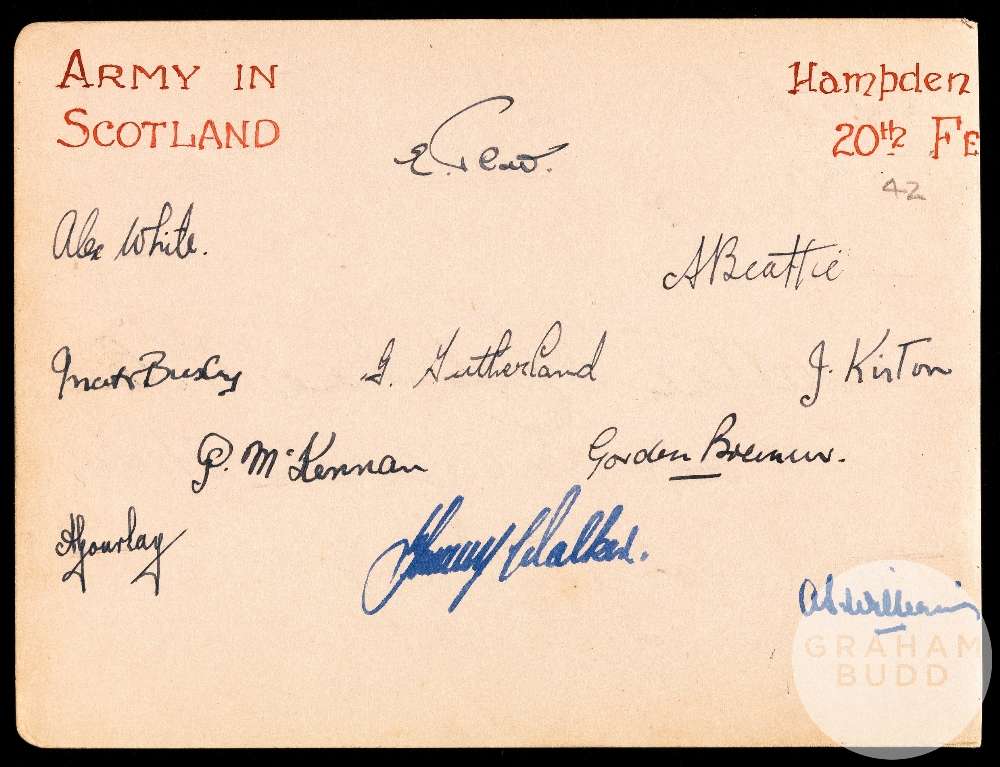 ARMY IN
SCOTLAND
Hampden
20th FE
42
Alex White.
A Beattie
Matt Busby
G. Sutherland
J. Kirton
P. McKennan
Gordon Bremner.
A Gourlay
Tommy Walker.
GRAHAM
BUDD